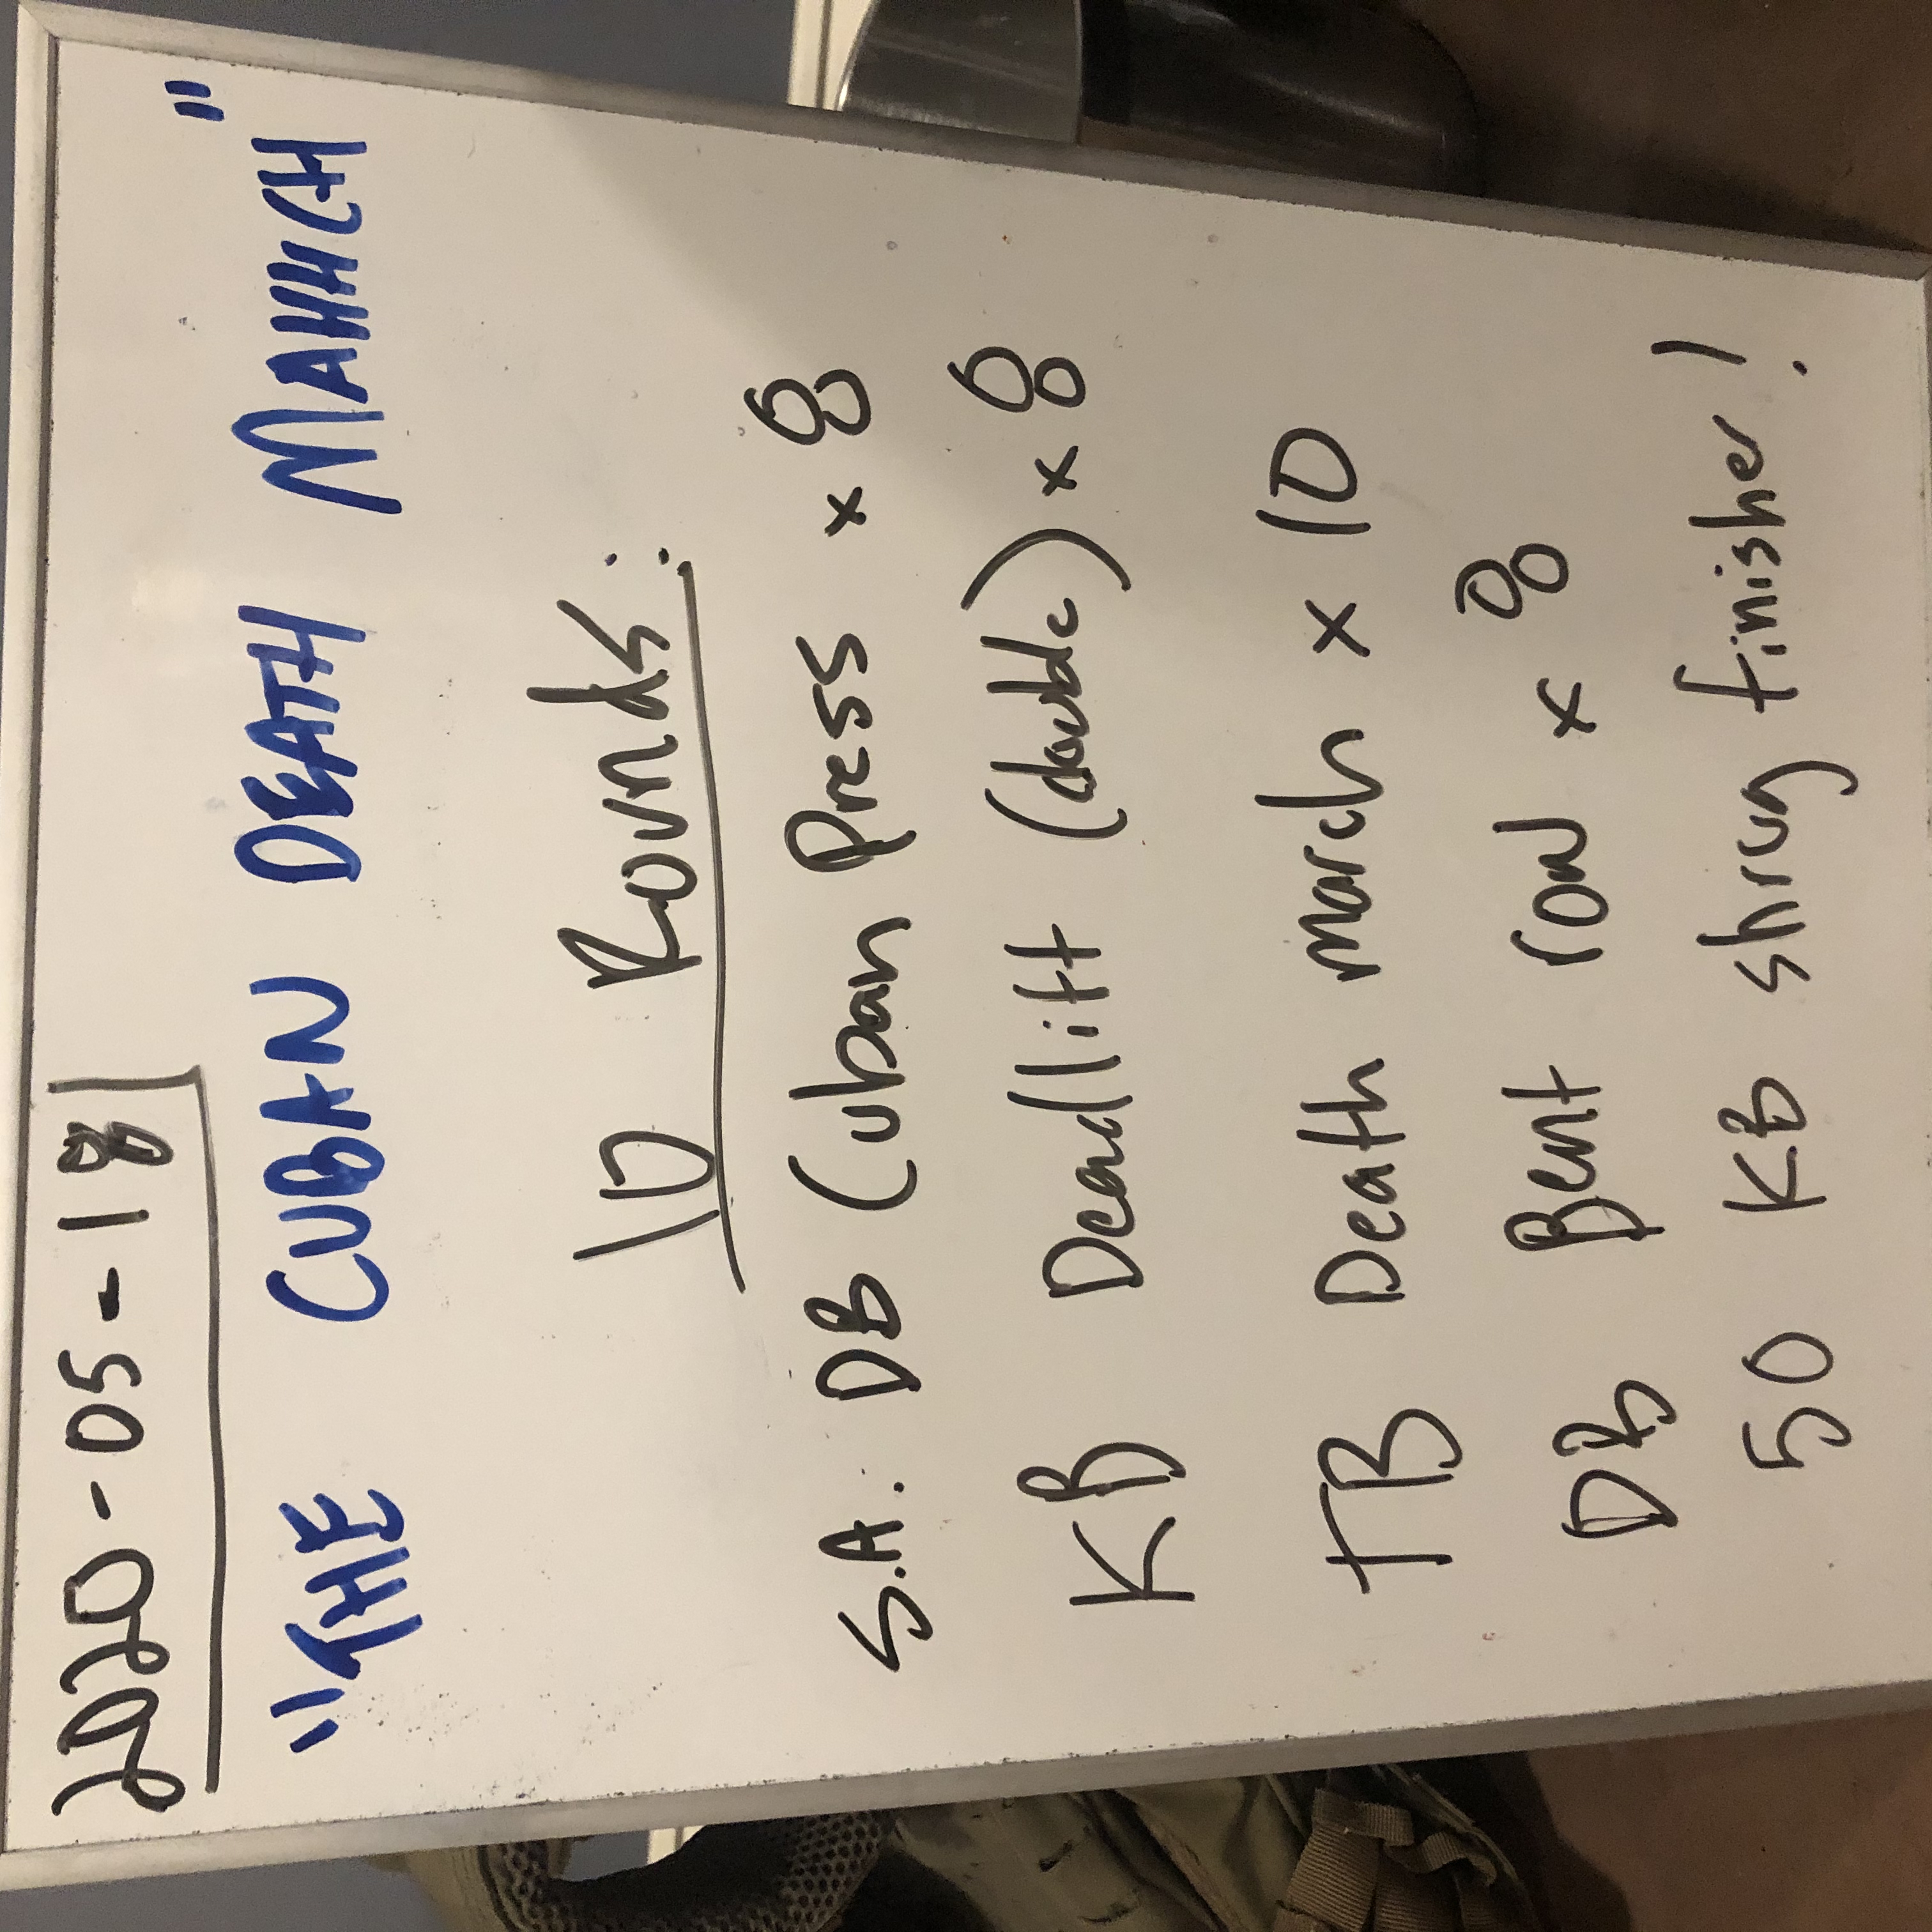 2020-05-18
"THE CUBAN DEATH MAHHCH"
10 Rounds:
S.A. DB Cuban Press x 8
KB Deadlift (double) x 8
TB Death march x 10
DB Bent row x 8
50 KB shrug finisher!